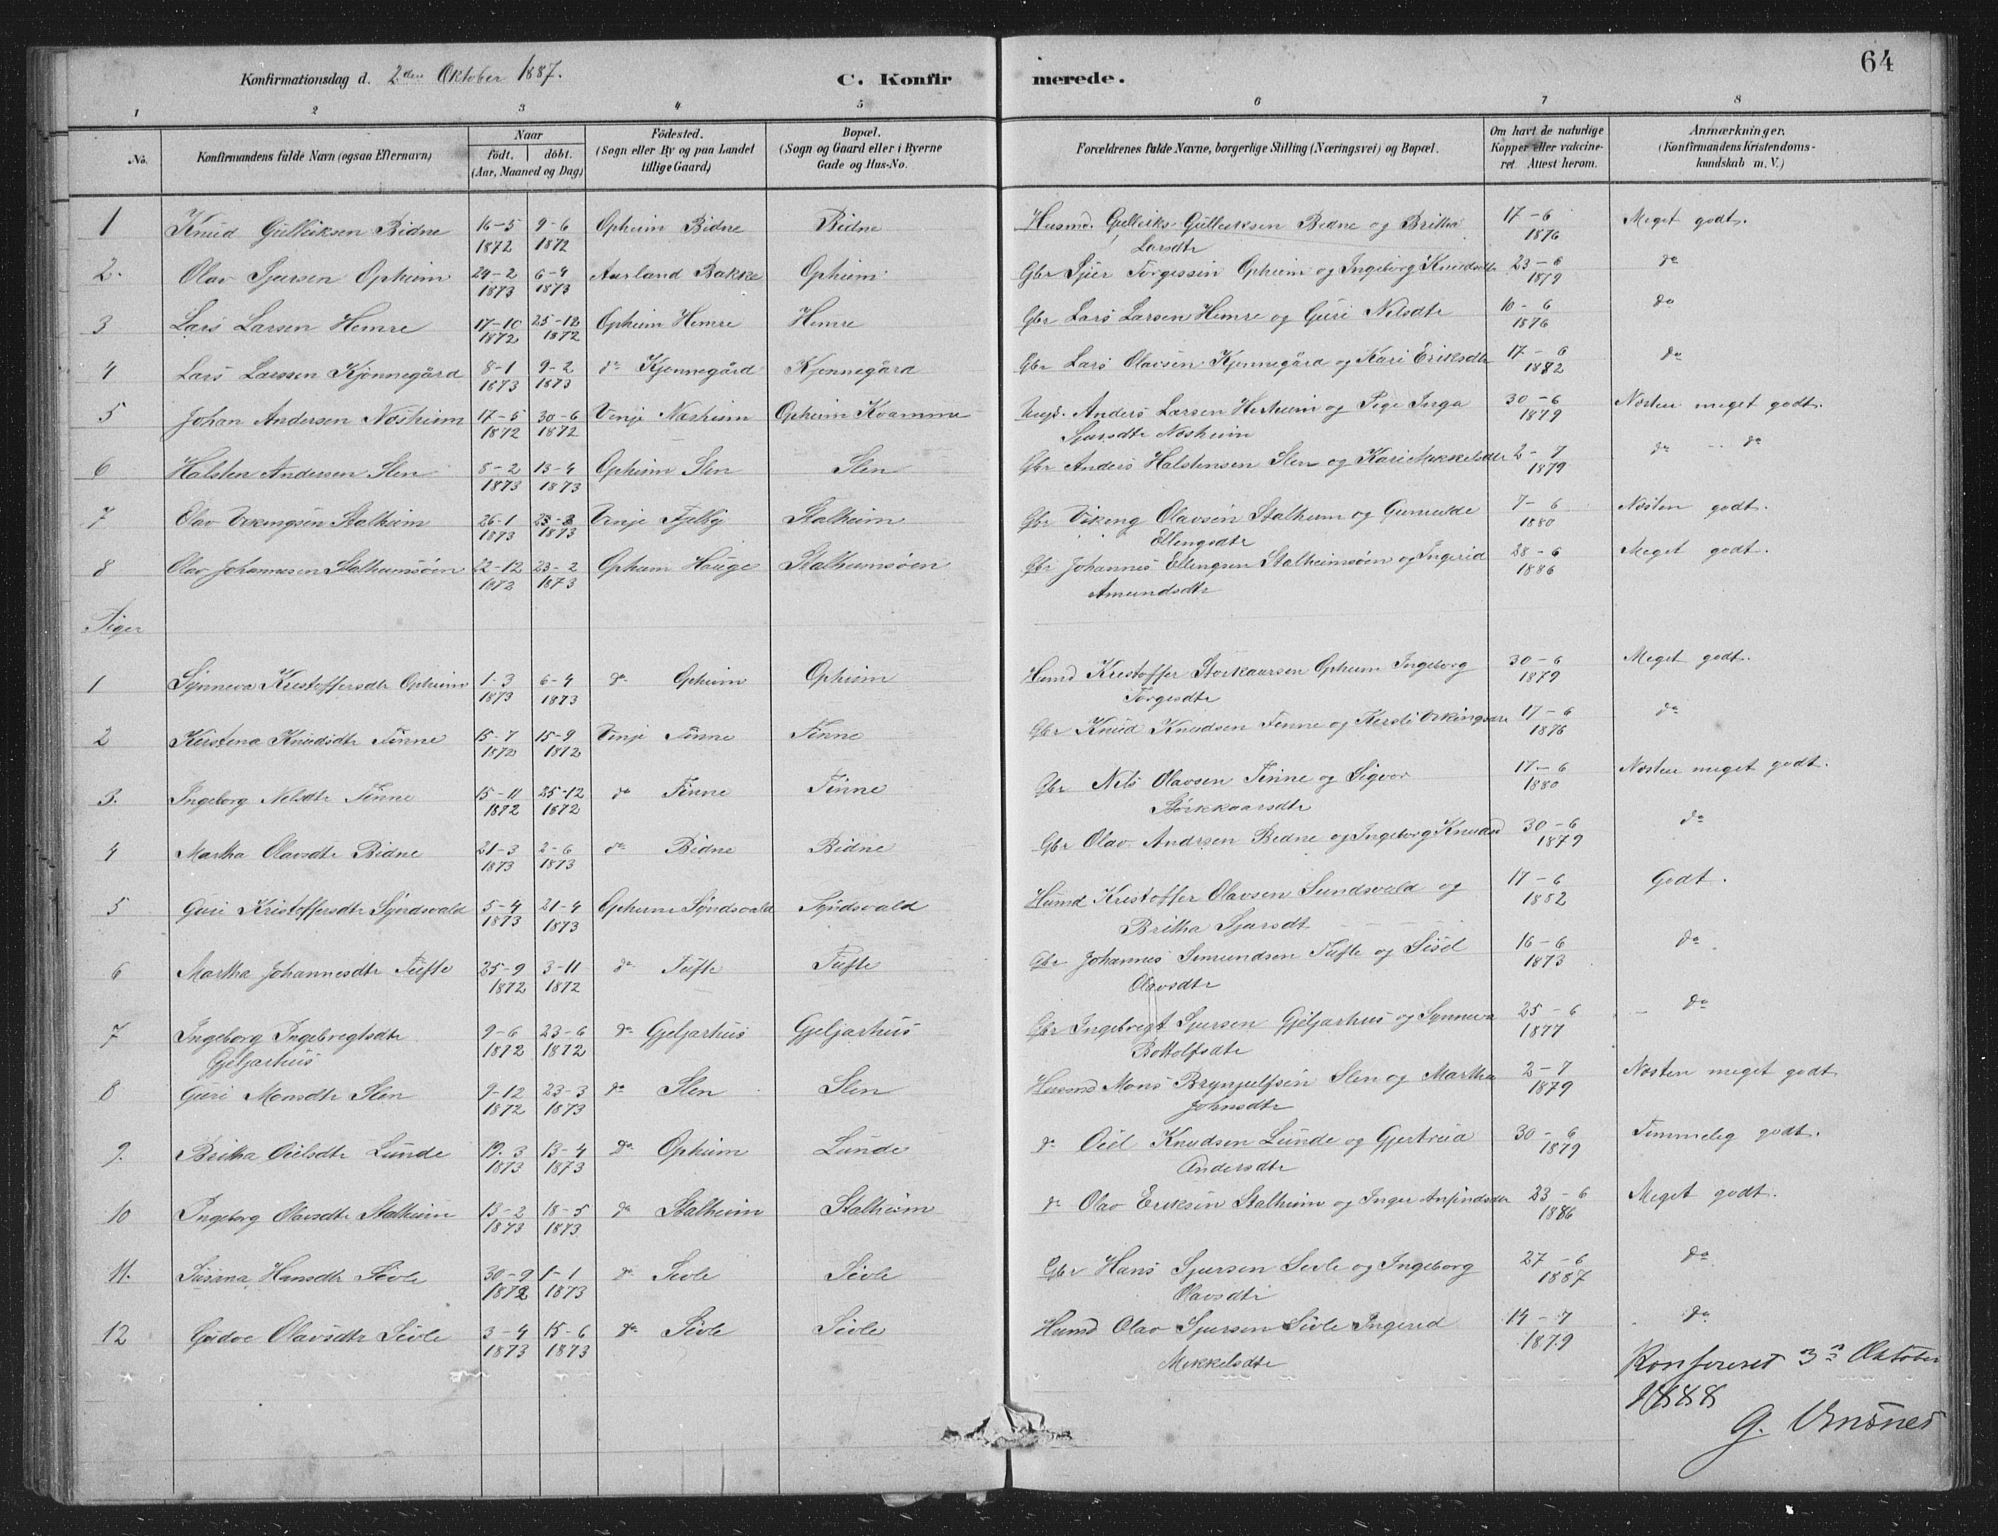 64
Konfirmationsdag d. 2den Oktober 1887. C. Konfirmerede.
1 2 3 4 5 6 7 8
No. Konfirmandens fulde Navn (ogsaa Efternavn) Naar født. døbt. (Aar, Maaned og Dag) Fødested. (Sogn eller By og paa Landet tillige Gaard) Bopæl. (Sogn og Gaard eller i Byerne Gade og Hus-No. Forældrenes fulde Navne, borgerlige Stilling (Næringsvei) og Bopæl. Om havt de naturlige Kopper eller vakcineret. Attest herom. Anmærkninger. (Konfirmandens Kristendomskundskab m. V.)
1 Knud Gulleiksen Bidne 16-5 1872 9-6 1872 Opheim Bidne Bidne Husmd. Gulleiks Gulleiksen Bidne og Britha Larsdtr 17-6 1876 Meget godt.
2. Olav Sjursen Opheim 24-2 1873 6-4 1873 Aurland Bakke Opheim Gbr Sjur Torgessen Opheim og Ingeborg Knudsdtr 23-6 1879 do
3 Lars Larsen Hemre 17-10 1872 25-12 1872 Opheim Hemre Hemre Gbr Lars Larsen Hemre og Guri Nilsdtr 10-6 1876 do
4 Lars Larssen Kjønnegård 8-1 1873 9-2 1873 do Kjønnegård Kjønnegård Gbr Lars Olavsen Kjønnegård og Kari Eriksdtr 17-6 1882 do
5 Johan Andersen Næsheim 17-5 1872 30-6 1872 Vinje Næsheim Opheim Kvamme Anders Larsen Herheim og Pige Inga Sjursdtr Næsheim 30-6 1879 Næsten meget godt.
6 Halsten Andersen Slen 8-2 1873 13-4 1873 Opheim Slen Slen Gbr Anders Halstensen Slen og Kari Mikkelsdtr 2-7 1879 do - do
7 Olav Vikingsen Stalheim 26-1 1873 23-3 1873 Vinje Fjelby Stalheim Gbr Viking Olavsen Stalheim og Gunvilde Ellingsdtr 7-6 1880 Næsten godt.
8 Olav Johannesen Stalheimsøien 22-12 1872 23-2 1873 Opheim Hauge Stalheimsøien Gbr Johannes Ellingsen Stalheimsøien og Ingerid Amundsdtr 28-6 1886 Meget godt.
Piger
1 Synneva Kristoffersdtr Opheim 1-3 1873 6-4 1873 do Opheim Opheim Husmd Kristoffer Storkaarsen Opheim Ingeborg Torgesdtr 30-6 1879 Meget godt.
2 Kristina Knudsdtr Finne 15-7 1872 15-9 1872 Vinje Finne Finne Gbr Knud Knudsen Finne og Kirsti Vikingsdtr 17-6 1876 do
3. Ingeborg Nilsdtr Finne 15-11 1872 25-12 1872 do Finne Finne Gbr Nils Olavsen Finne og Sigvor Storkkaarsdtr 17-6 1880 Næsten meget godt.
4 Martha Olavsdtr Bidne 21-3 1873 2-6 1873 do Bidne Bidne Gbr Olav Andrsen Bidne og Ingeborg Knudsd 30-6 1879 do
5 Guri Kristoffersdtr Syndsvald 5-4 1873 21-4 1873 Opheim Syndsvald Syndsvald Husmd Kristoffer Olavsen Sundsvald og Britha Sjursdt 17-6 1882 Godt.
6 Martha Johannesdtr Tufte 25-9 1872 3-11 1872 do Tufte Tufte Gbr Johannes Simundsen Tufte og Sisel Olavsdtr 16-6 1873 do
7 Ingeborg Ingebregtsdtr Gjeljarhus 9-6 1872 23-6 1872 do Gjeljarhus Gjeljarhus Gbr Ingebregt Sjursen Gjeljarhus og Synneva Bottolfsdtr 25-6 1877 do
8 Guri Monsdtr Slen 9-12 1872 23-3 1873 do Slen Slen Husmd Mons Brynjulfsen Slen og Martha Johnsdtr 2-7 1879 Næsten meget godt
9. Britha Oielsdtr Lunde 19-3 1873 13-4 1873 do Opheim Lunde do Oiel Knudsen Lunde og Gjertrud Andersdtr 30-6 1879 Temmelig godt.
10 Ingeborg Olavsdtr Stalheim 13-2 1873 18-5 1873 do Stalheim Stalheim do Olav Eriksen Stalheim og Inger Anfindsdtr 23-6 1886 Meget godt.
11. Susina Hansdtr Sivle 30-9 1872 1-1 1873 do Sivle Sivle Gbr Hans Sjursen Sivle og Ingeborg Olavsdtr 27-6 1887 do
12 Gudve Olavsdtr Sivle 3-4 1873 15-6 1873 do Sivle Sivle Husmd Olav Sjursen Sivle Ingerid Mikkelsdtr 14-7 1879 do
Konfereret 3 Oktober
1888
G.